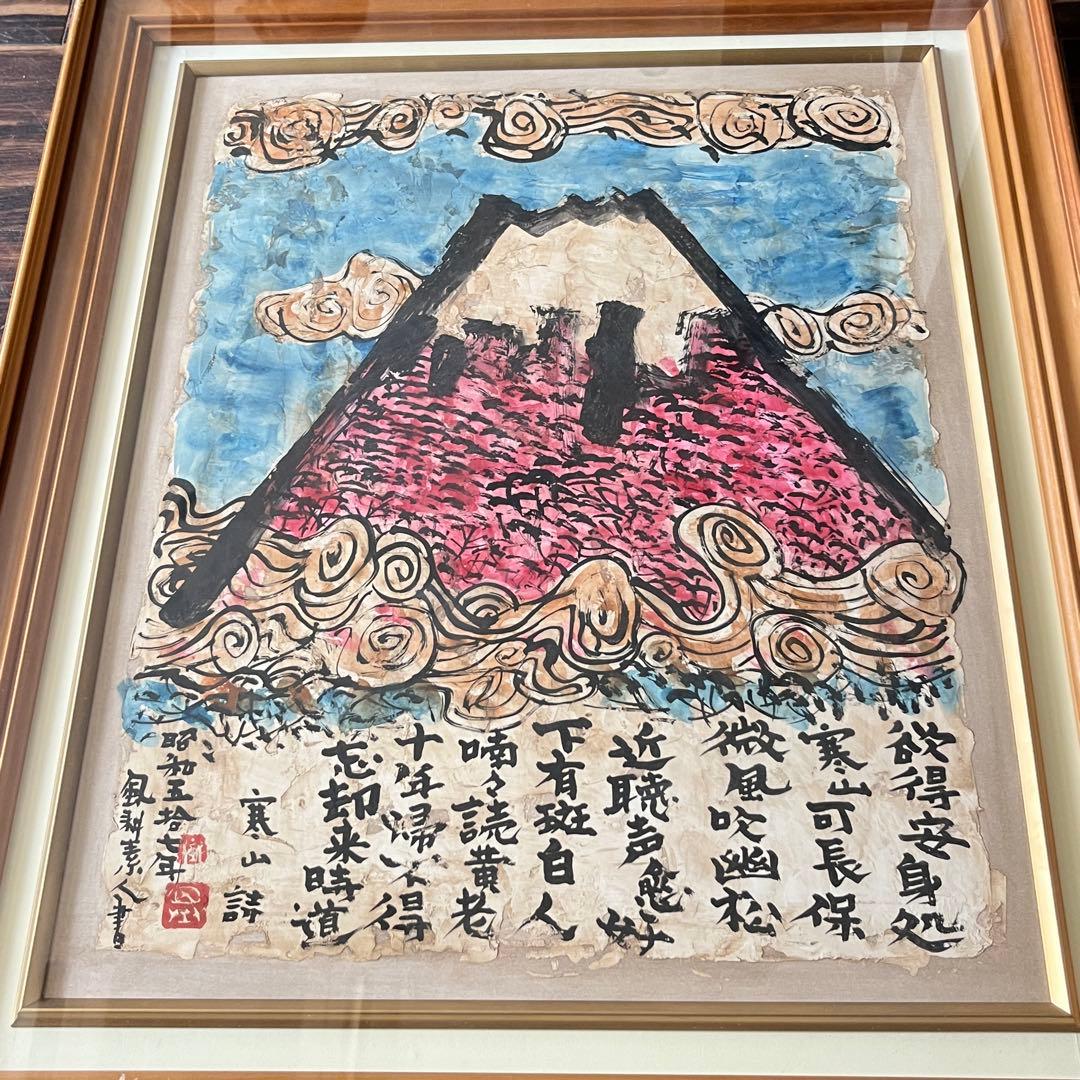 欲得安身処
寒山可長保
微風吹幽松
近聴声愈好
下有斑白人
喃々読黄老
十年帰不得
忘却来時道
寒山詩
昭和五拾七年
風耕素人書